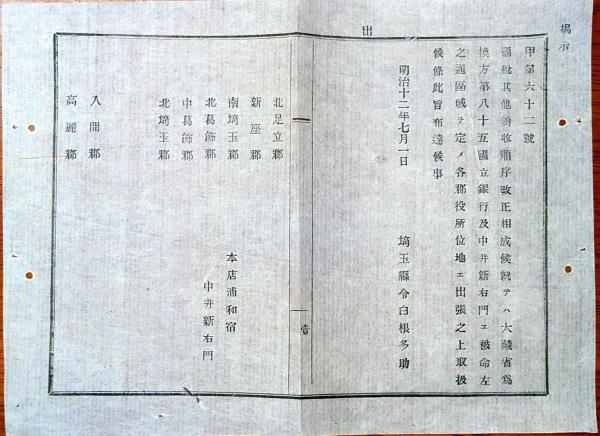 掲示
甲第六十二號
國税其他領收順序改正相成候就テハ大藏省爲
換方第八十五國立銀行及中井新右門エ被命左
之通區域ヲ定メ各郡役所位地エ出張之上取扱
候條此旨布達候事
明治十二年七月一日
埼玉縣令白根多助
出
壹
北足立郡
新座郡
南埼玉郡
北葛飾郡
中葛飾郡
北埼玉郡
本店浦和宿
中井新右門
入間郡
高麗郡